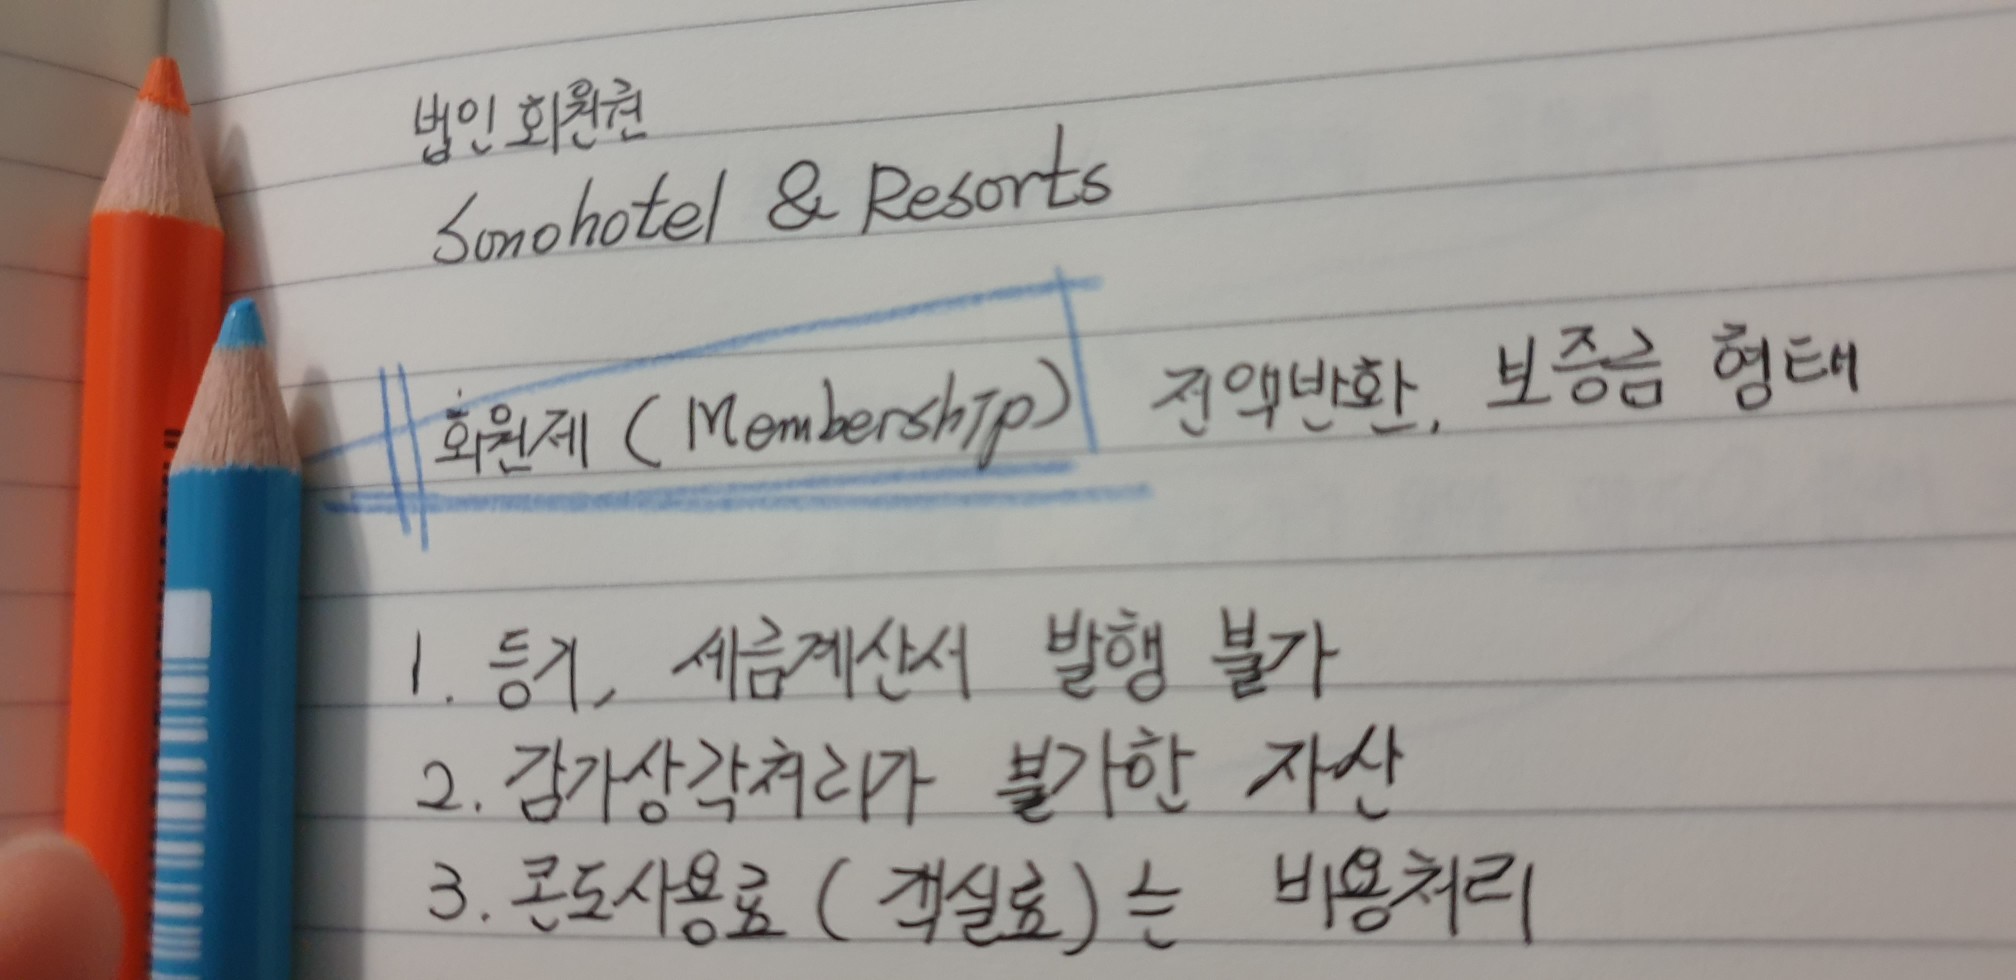 법인 회원권
Sonohotel & Resorts
회원제 (Membership) 전액반환, 보증금 형태
1. 등기, 세금계산서 발행 불가
2. 감가상각처리가 불가한 자산
3. 콘도사용료 (객실료)는 비용처리